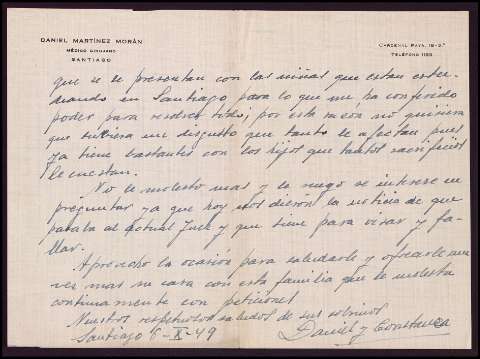 DANIEL MARTÍNEZ MORÁN
MÉDICO CIRUJANO
SANTIAGO
CARDENAL PAYÁ, 18-2.º
TELÉFONO 1188
que se le presentan con las niñas que estan estu-
diando en Santiago para lo que me ha conferido
poder para resolver todo; por esta razón no quisiera
que tuviera un disgusto que tanto le afectan pues
ya tiene bastantes con los hijos que tantos sacrificios
le cuestan.
No le molesto mas y le ruego se interese en
preguntar ya que hoy nos dieron la noticia de que
pasaba al actual Juez y que tiene para visar y fa-
llar.
Aprovecho la ocasión para saludarle y ofrecerle una
vez mas su casa con esta familia que le molesta
continuamente con peticiones
Nuestros respetuosos saludos de sus sobrinos
Santiago 8-X-49
Daniel y Constanza